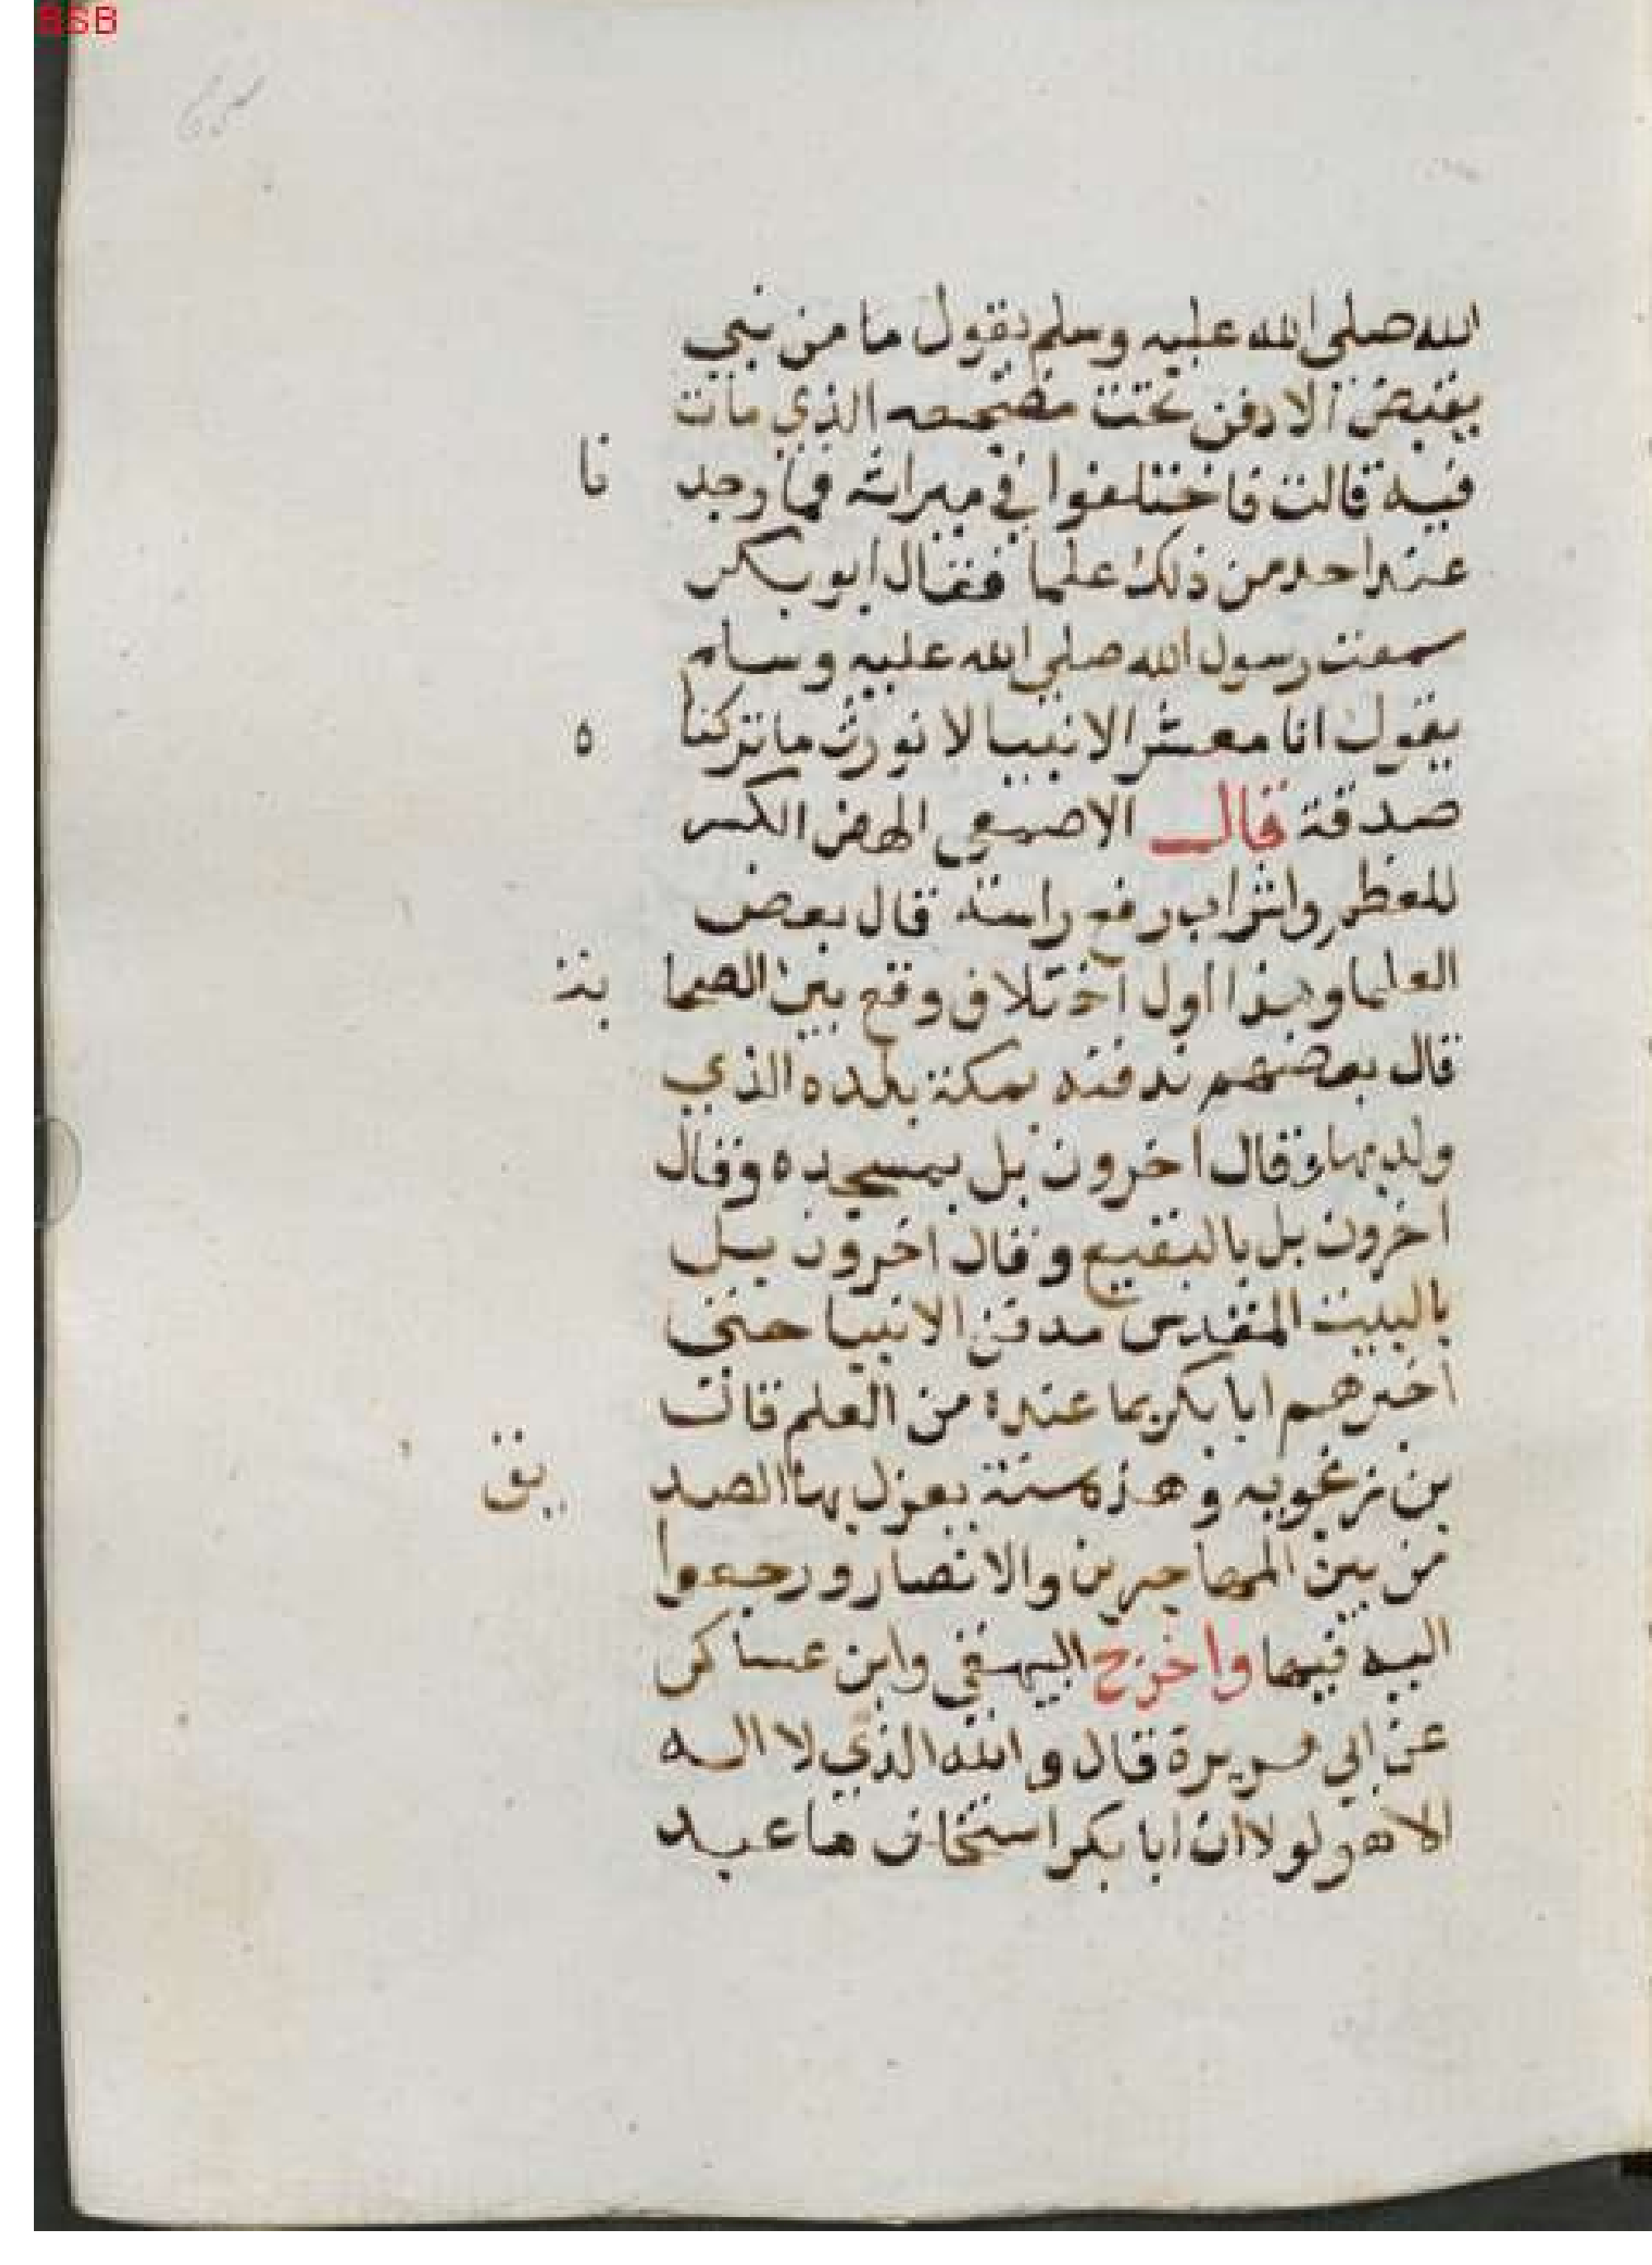 الله صلى الله عليه وسلم يقول ما من نبي
يقبض الا دفن تحت مضجعه الذي مات
فيه قالت فاختلفوا في ميراثه فما وجد نا
عند احد من ذلك علما فقال ابو بكر
سمعت رسول الله صلى الله عليه وسلم
يقول انا معشر الانبيا لا نورث ما تركنا ه
صدقة قال الاصمعي الهض الكسر
للعظم واشراب رفع راسه قال بعض
العلما وهذا اول اختلاف وقع بين الصحا بة
قال بعضهم ندفنه بمكة بلده الذي
ولد بها وقال اخرون بل بمسجده وقال
اخرون بل بالبقيع وقال اخرون بل
بالبيت المقدس مدفن الانبيا حتى
اخبرهم ابا بكر بما عنده من العلم قالت
بن زغويه وهذه سنة بعزل بها الصد يق
من بين المهاجرين والانصار ورجعوا
اليه فيها واخرج البيهقي وابن عساكر
عن ابي هريرة قال والله الذي لا اله
الا هو لولا ان ابا بكر استخلف ما عبد